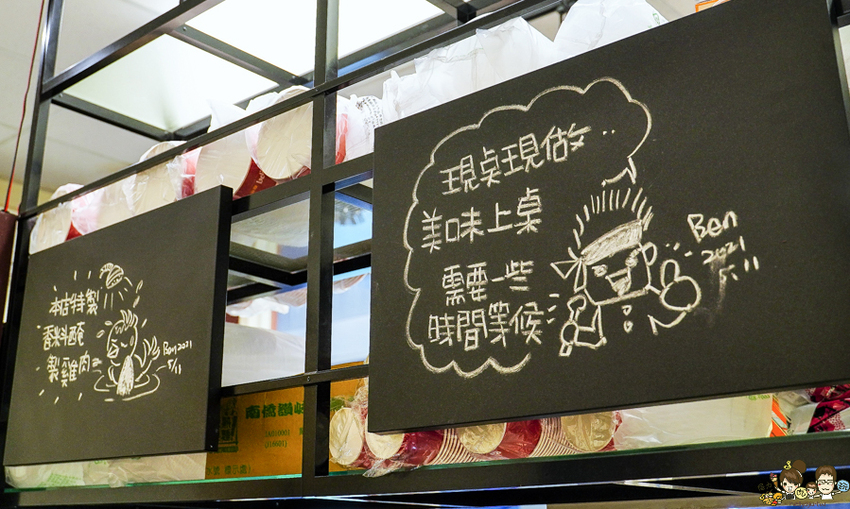 本店特製
香料醃
製雞肉
Ben 2021
5/11
現桌現做..
美味上桌
需要一些
時間等候
Ben
2021
5.11